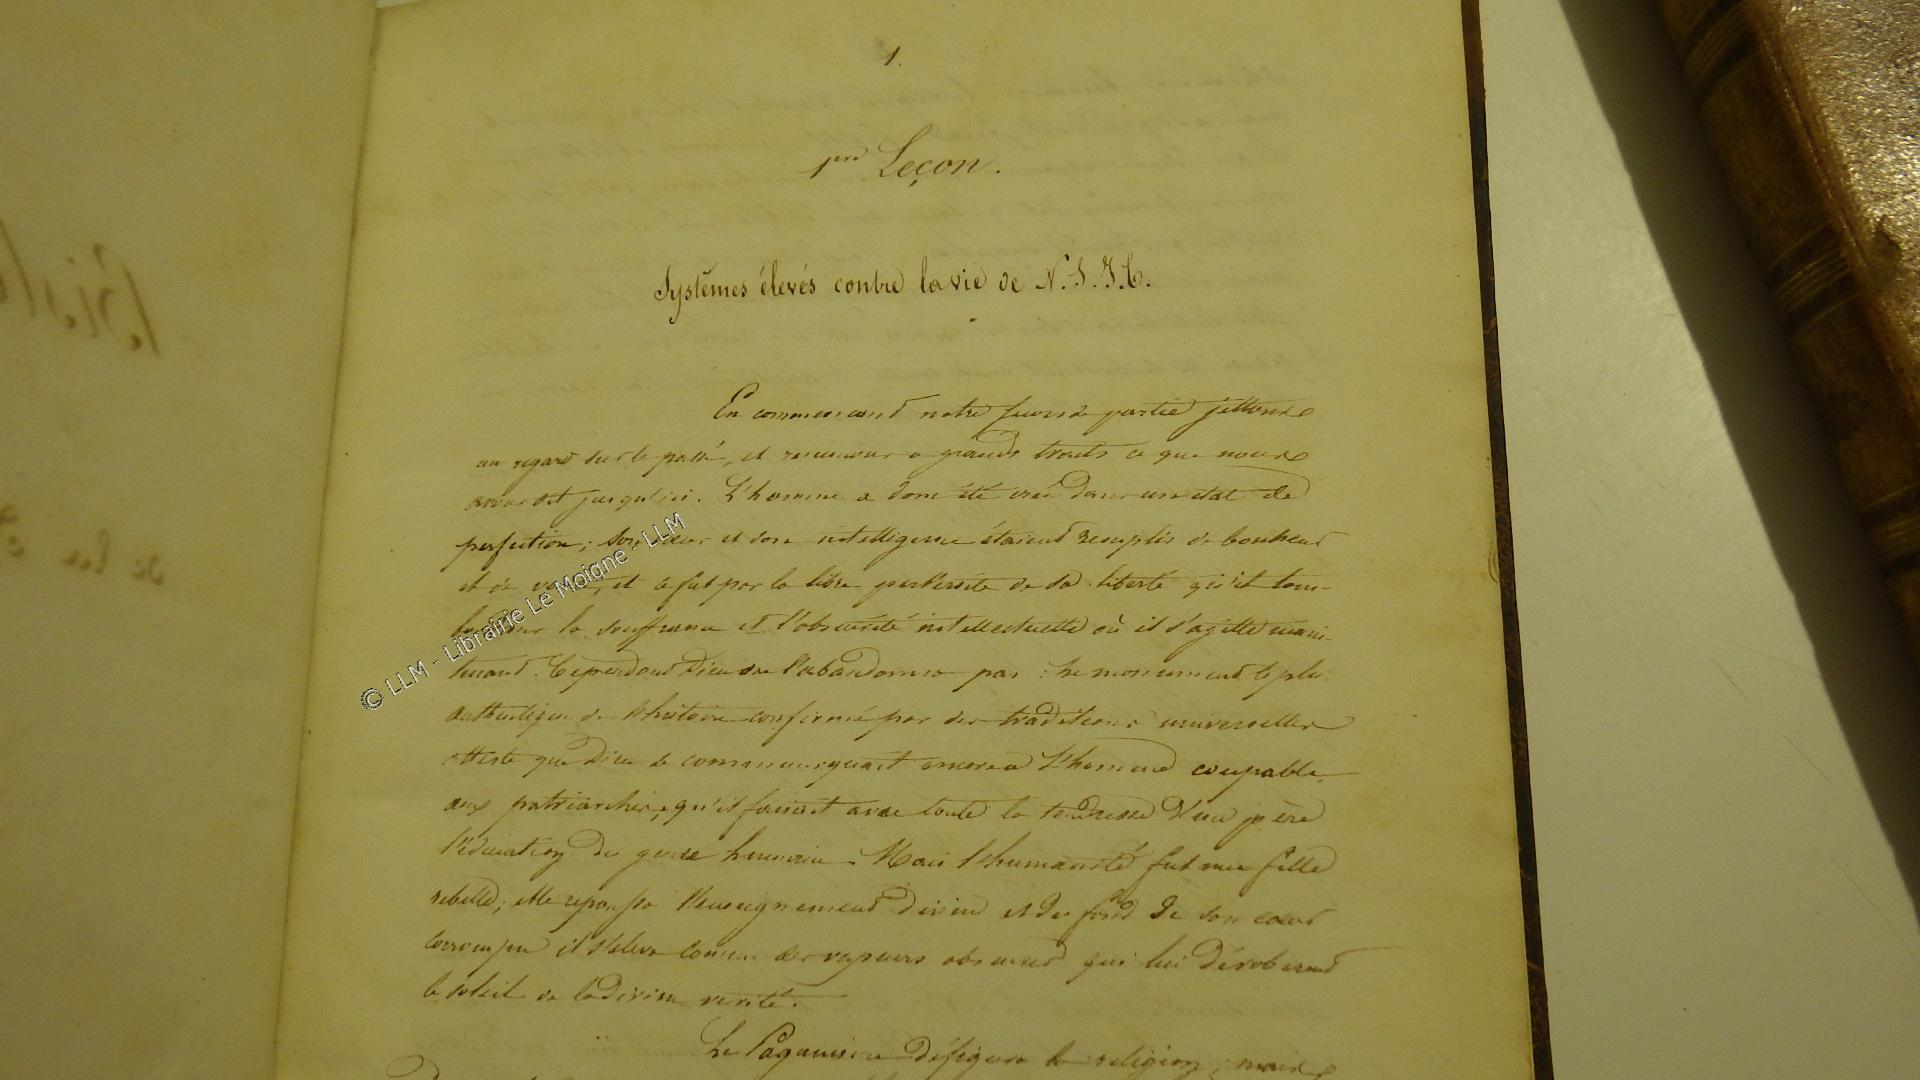 1.
1ère Leçon.
Systêmes élevés contre la vie de N. S. J. C.
En commencant notre seconde partie jettons
un regard sur le passé, et resumons a grands traits ce que nous
avons dit jusqu'ici. L'homme a donc été créé dans un état de
perfection; son cœur et son intelligence étaient remplis de bonheur
et de vérité, et ce fut par la libre perversité de sa liberté qu'il tom-
ba dans la souffrance et l'obscurité intellectuelle où il s'agitte main-
tenant. Cependant Dieu ne l'abandonna pas : le monument le plus
authentique de l'histoire confirmé par des traditions universelles
atteste que Dieu se communiquait encore à l'homme coupable
aux patriarches, qu'il faisait avec toute la tendresse d'un père
l'éducation du genre humain. Mais l'humanité fut une fille
rebelle; elle repoussa l'enseignement divin et du fond de son cœur
corrompu il s'éleva comme des vapeurs obscures qui lui dérobèrent
le soleil de la divine vérité.
Le Paganisme défigura la religion, mais
© LLM - Librairie Le Moigne - LLM